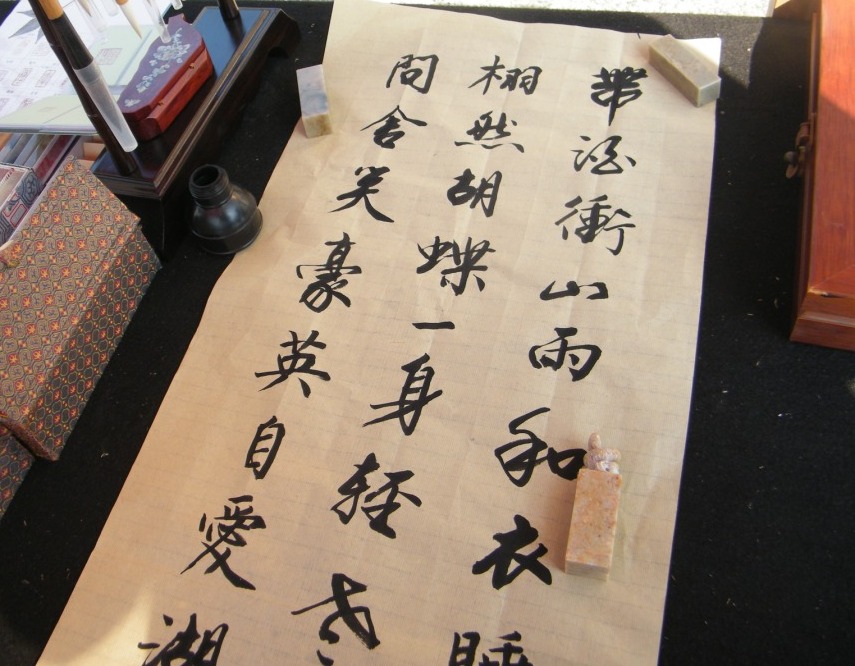 帶酒衝山雨和衣睡
栩然胡蝶一身輕老
問舍笑豪英自愛湖